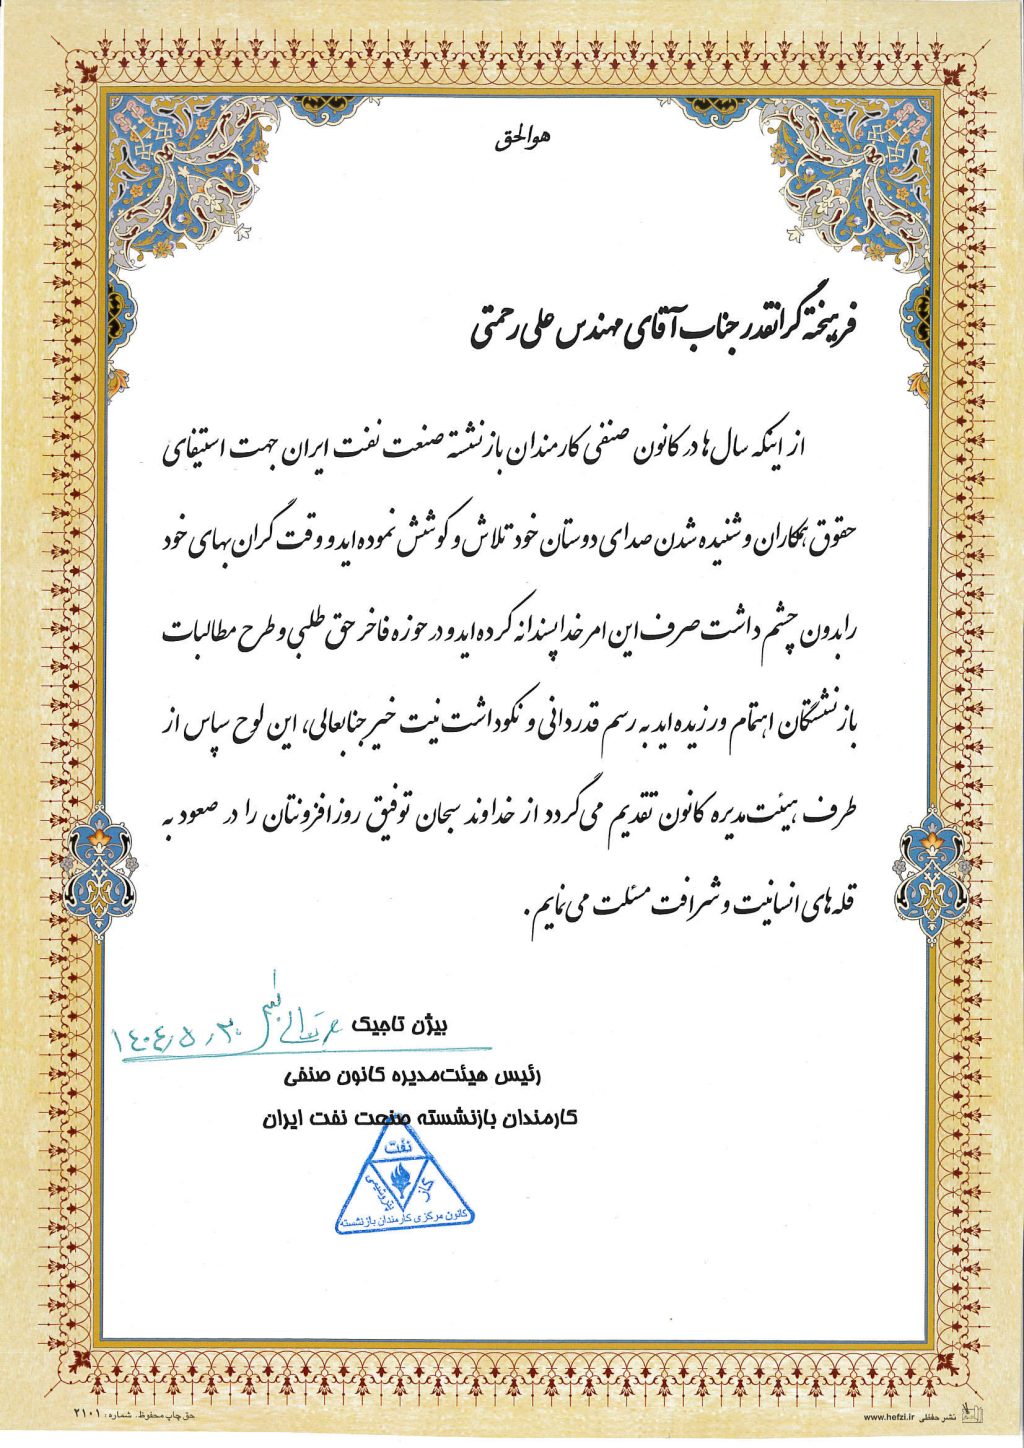 هوالحق
فرهیخته گرانقدر جناب آقای مهندس علی رحمتی
از اینکه سال ها در کانون صنفی کارمندان بازنشسته صنعت نفت ایران جهت استیفای
حقوق همکاران و شنیده شدن صدای دوستان خود تلاش و کوشش نموده اید و وقت گران بهای خود
را بدون چشم داشت صرف این امر خداپسندانه کرده اید و در حوزه فاخر حق طلبی و طرح مطالبات
بازنشستگان اهتمام ورزیده اید به رسم قدردانی و نکوداشت نیت خیر جنابعالی، این لوح سپاس از
طرف هیئت مدیره کانون تقدیم می گردد از خداوند سبحان توفیق روز افزونتان را در صعود به
قله های انسانیت و شرافت مسئلت می نمایم .
بیژن تاجیک
۱۴۰۴٫۵٫۳۰
رئیس هیئت‌مدیره کانون صنفی
کارمندان بازنشسته صنعت نفت ایران
نفت
گاز
پتروشیمی
کانون مرکزی کارمندان بازنشسته
حق چاپ محفوظ. شماره: ۲۱۰۱
نشر حفظی www.hefzi.ir